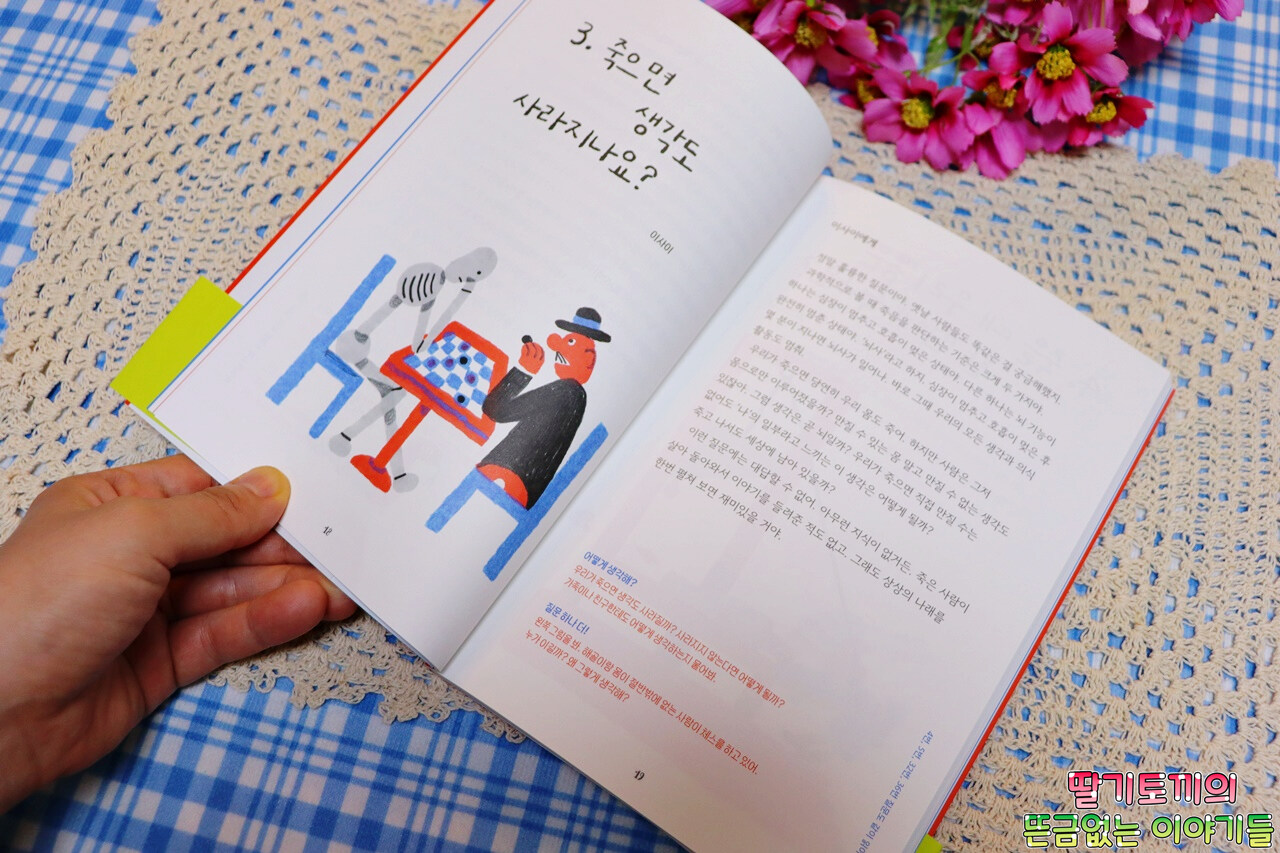 3. 죽으면
생각도
사라지나요?
이사이
12
이사이에게
정말 훌륭한 질문이야. 옛날 사람들도 똑같은 걸 궁금해했지.
과학적으로 볼 때 죽음을 판단하는 기준은 크게 두 가지야.
하나는 심장이 멈추고 호흡이 멎은 상태야. 다른 하나는 뇌 기능이
완전히 멈춘 상태야. '뇌사'라고 하지. 심장이 멈추고 호흡이 멎은 후
몇 분이 지나면 뇌사가 일어나. 바로 그때 우리의 모든 생각과 의식
활동도 멈춰.
우리가 죽으면 당연히 우리 몸도 죽어. 하지만 사람은 그저
몸으로만 이루어졌을까? 만질 수 있는 몸 말고 만질 수 없는 생각도
있잖아. 그럼 생각은 곧 뇌일까? 우리가 죽으면 직접 만질 수는
없어도 '나'의 일부라고 느끼는 이 생각은 어떻게 될까?
죽고 나서도 세상에 남아 있을까?
이런 질문에는 대답할 수 없어. 아무런 지식이 없거든. 죽은 사람이
살아 돌아와서 이야기를 들려준 적도 없고. 그래도 상상의 나래를
한번 펼쳐 보면 재미있을 거야.
어떻게 생각해?
우리가 죽으면 생각도 사라질까? 사라지지 않는다면 어떻게 될까?
가족이나 친구한테도 어떻게 생각하는지 물어봐.
질문 하나 더!
왼쪽 그림을 봐. 해골이랑 몸이 절반밖에 없는 사람이 체스를 하고 있어.
누가 이길까? 왜 그렇게 생각해?
13
4번, 5번, 32번, 36번 질문도 같이 읽어
딸기토끼의
뜬금없는 이야기들